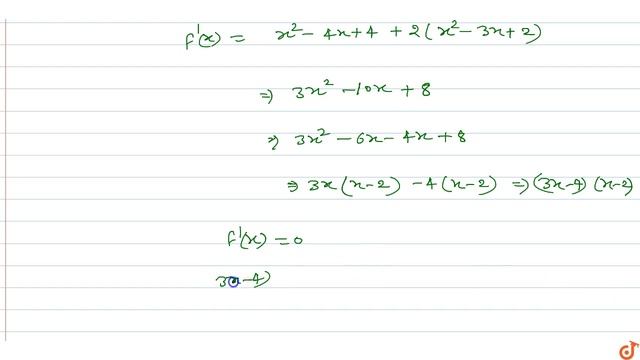 f'(x) = x² - 4x + 4 + 2(x² - 3x + 2)
⇒ 3x² - 10x + 8
⇒ 3x² - 6x - 4x + 8
⇒ 3x(x-2) - 4(x-2) ⇒ (3x-4)(x-2)
f'(x) = 0
3x-4)